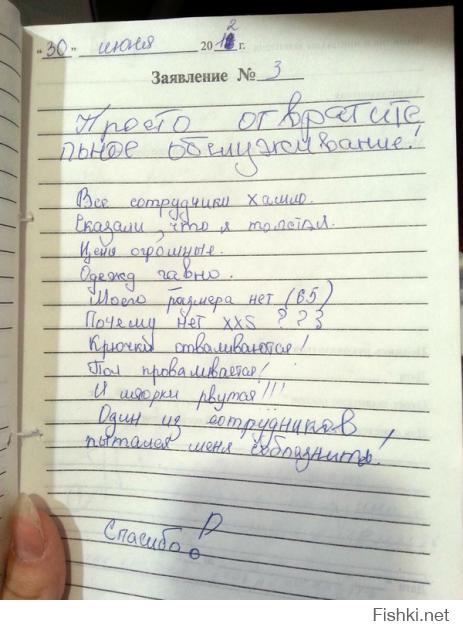 "30" июня 2012 г.
Заявление № 3
Просто отвратите
льное обслуживание!
Все сотрудники хамло.
Сказали, что я толстая.
Цены огромные.
Одежд гавно.
Моего размера нет (65)
Почему нет XXS ???
Крючки отваливаются!
Пол проваливается!
И шторки рвутся!!!
Один из сотрудников
пытался меня соблазнить!
Спасибо
Fishki.net